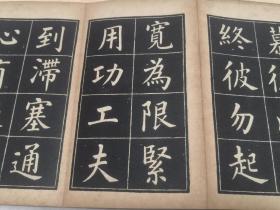 慕
終彼勿起
寬為限緊
用功工夫
到滯塞通
心有